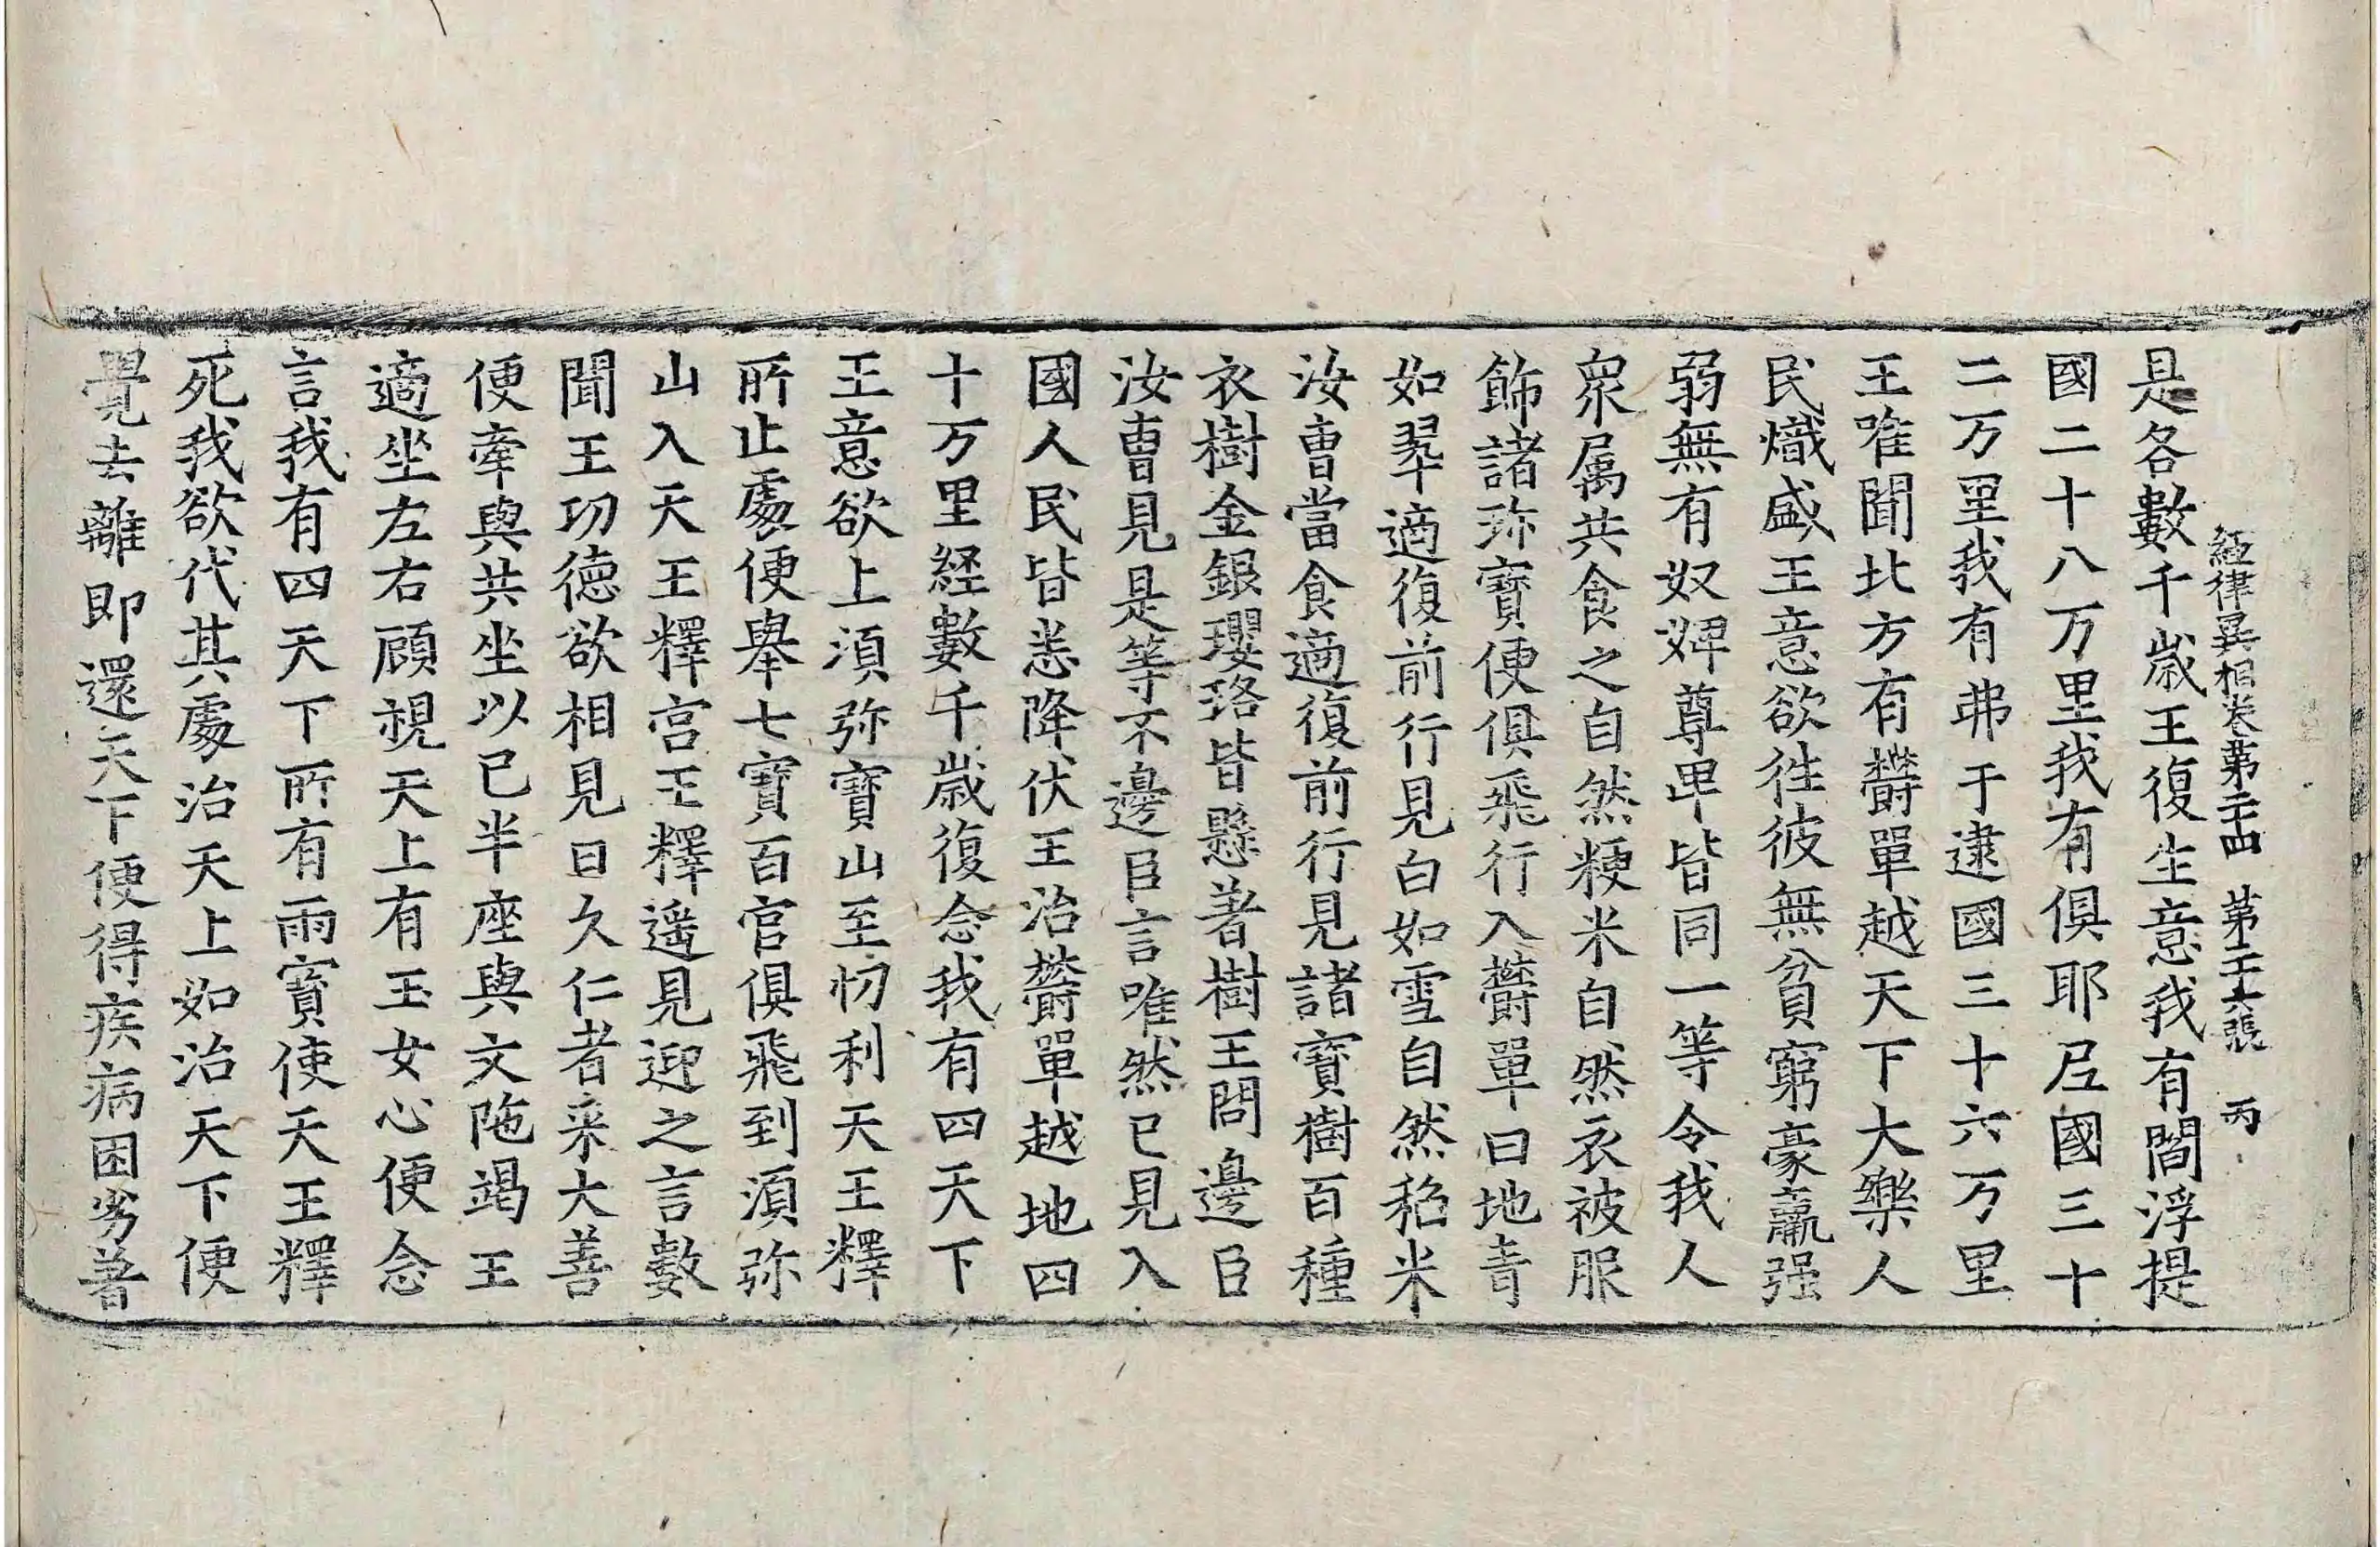 經律異相卷第二十四 第十六張 丙
是各數千歲王復生意我有閻浮提
國二十八万里我有俱耶尼國三十
二万里我有弗于逮國三十六万里
王唯聞北方有欝單越天下大樂人
民熾盛王意欲往彼無貧窮豪羸强
弱無有奴婢尊卑皆同一等令我人
衆属共食之自然粳米自然衣被服
飾諸珎寶便俱飛行入欝單曰地青
如翠適復前行見白如雪自然稻米
汝曹當食適復前行見諸寶樹百種
衣樹金銀瓔珞皆懸著樹王問邊臣
汝曹見是等不邊臣言唯然已見入
國人民皆悉降伏王治欝單越地四
十万里経數千歲復念我有四天下
王意欲上湏弥寶山至忉利天王釋
所止處便舉七寶百官俱飛到湏弥
山入天王釋宫王釋遥見迎之言數
聞王功德欲相見日久仁者来大善
便牽與共坐以已半座與文陁竭王
適坐左右顧視天上有玉女心便念
言我有四天下所有雨寶使天王釋
死我欲代其處治天上如治天下便
覺去離即還天下便得疾病困劣著